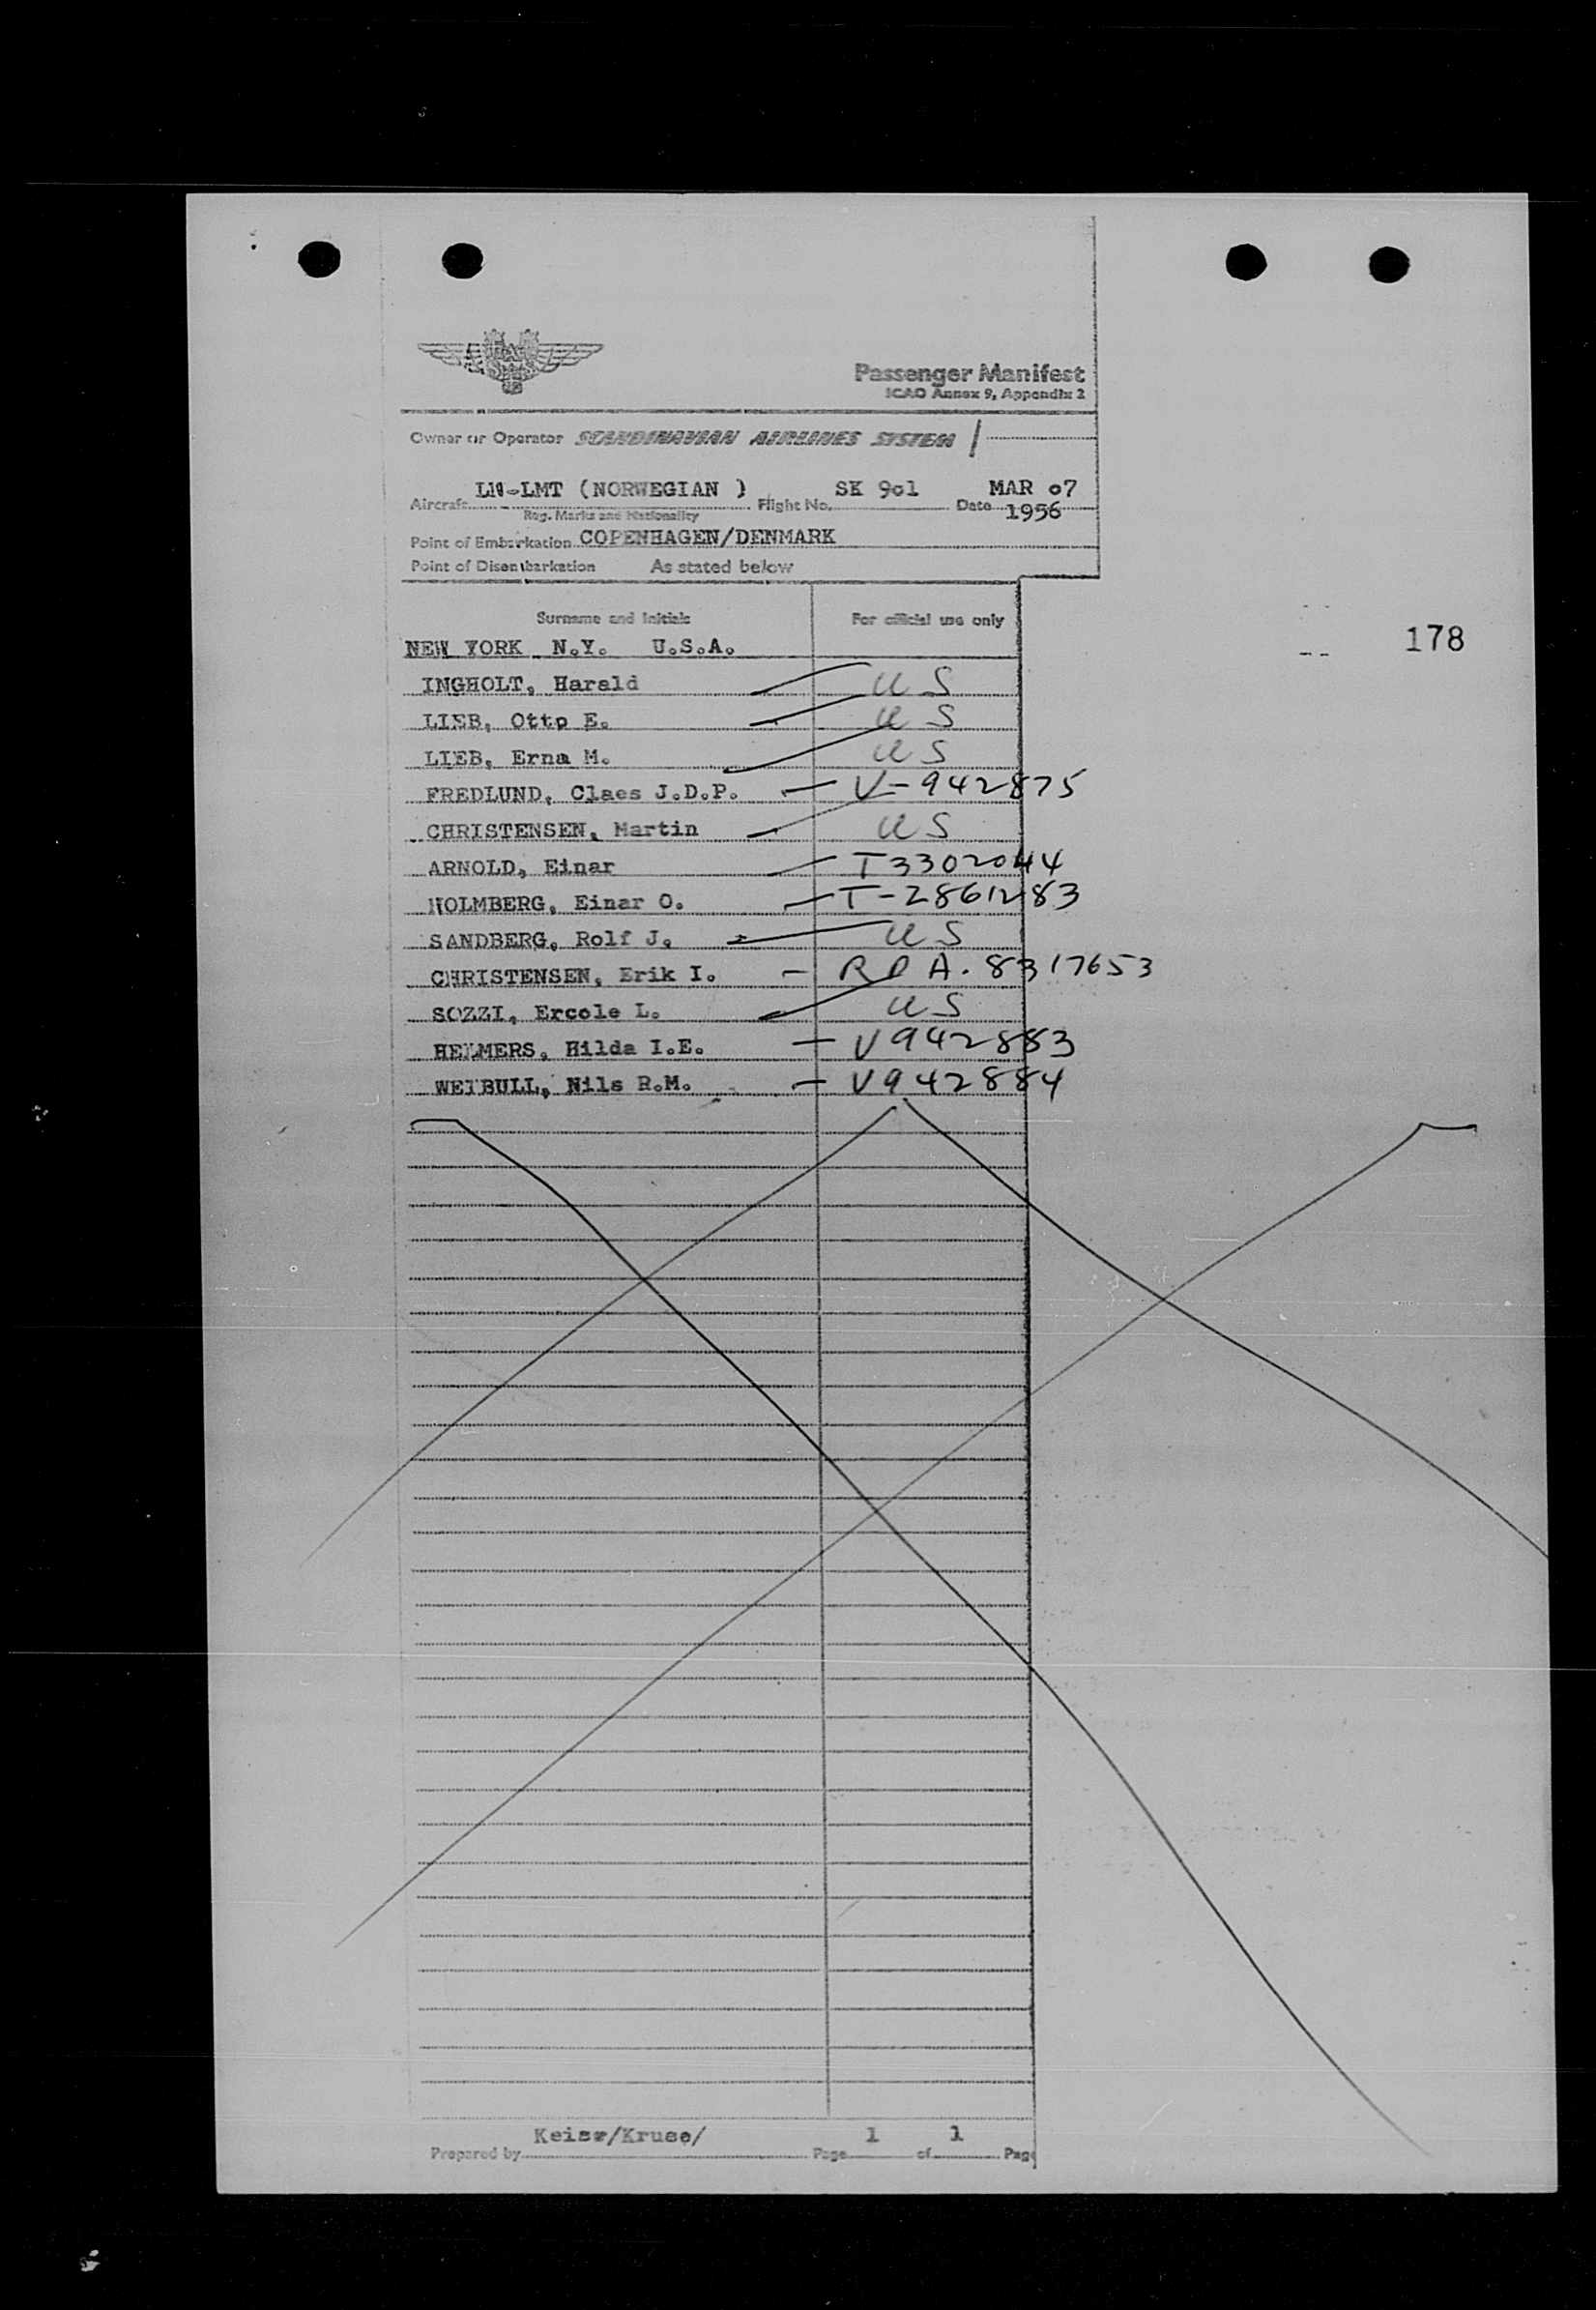 Passenger Manifest
ICAO Annex 9, Appendix 2
Owner or Operator SCANDINAVIAN AIRLINES SYSTEM
Aircraft LN-LMT (NORWEGIAN ) Flight No. SK 901 Date MAR 07
1956
Reg. Marks and Nationality
Point of Embarkation COPENHAGEN/DENMARK
Point of Disembarkation As stated below
Surname and Initials For official use only
NEW YORK N.Y. U.S.A.
178
INGHOLT, Harald US
LIEB, Otto E. US
LIEB, Erna M. US
FREDLUND, Claes J.D.P. — V-942875
CHRISTENSEN, Martin US
ARNOLD, Einar — T3302044
HOLMBERG, Einar O. — T-2861283
SANDBERG, Rolf J. US
CHRISTENSEN, Erik I. — RP A. 8317653
SOZZI, Ercole L. US
HELMERS, Hilda I.E. — V942883
WEIBULL, Nils R.M. — V942884
Prepared by Keise/Kruse/ Page 1 of 1 Page